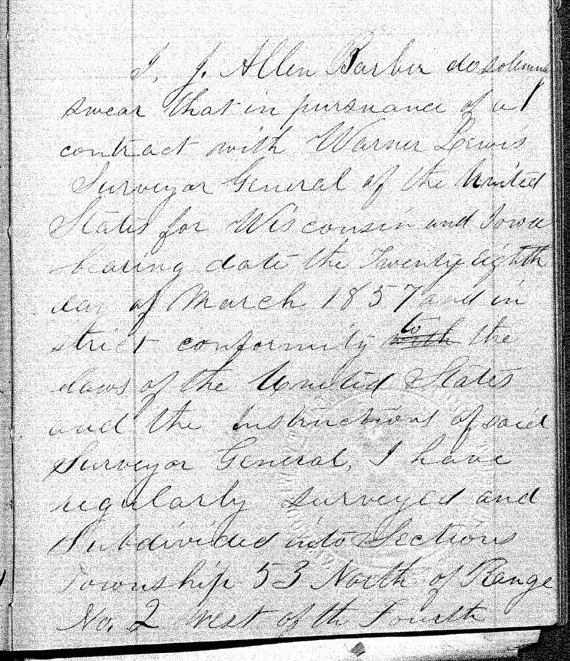 I, J. Allen Barber do solemnly
swear that in pursuance of a
contract with Warner Lewis
Surveyor General of the United
States for Wisconsin and Iowa
bearing date the Twenty eighth
day of March 1857 and in
strict conformity to with the
laws of the United States
and the instructions of said
Surveyor General, I have
regularly surveyed and
Subdivided into Sections
Township 53 North of Range
No. 2 West of the Fourth